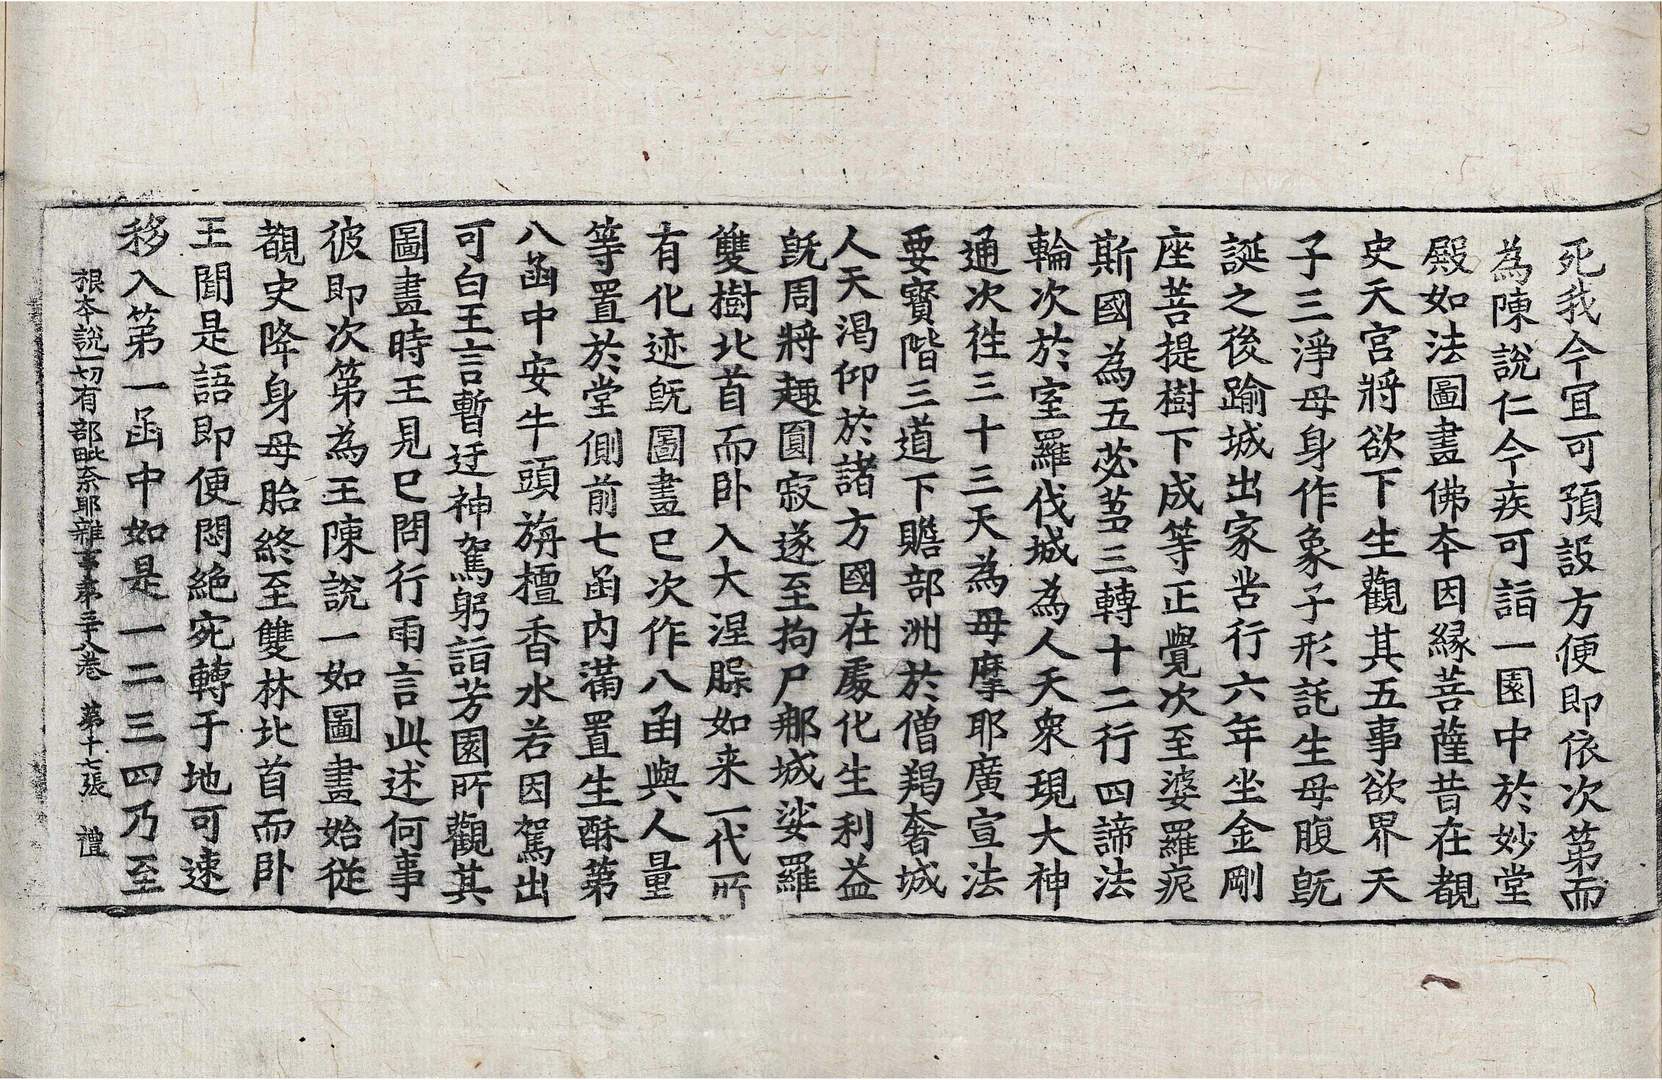 死我今宜可預設方便即依次第而
為陳說仁今疾可詣一園中於妙堂
殿如法圖畫佛本因緣菩薩昔在覩
史天宮將欲下生觀其五事欲界天
子三淨母身作象子形託生母腹既
誕之後踰城出家苦行六年坐金剛
座菩提樹下成等正覺次至婆羅痆
斯國為五苾芻三轉十二行四諦法
輪次於室羅伐城為人天衆現大神
通次往三十三天為母摩耶廣宣法
要寶階三道下贍部洲於僧羯奢城
人天渴仰於諸方國在處化生利益
既周將趣圓寂遂至拘尸那城娑羅
雙樹北首而卧入大涅槃如来一代所
有化迹既圖畫已次作八函與人量
等置於堂側前七函內滿置生酥第
八函中安牛頭旃檀香水若因駕出
可白王言暫迂神駕躬詣芳園所觀其
圖畫時王見已問行雨言此述何事
彼即次第為王陳說一如圖畫始從
覩史降身母胎終至雙林北首而卧
王聞是語即便悶絶宛轉于地可速
移入第一函中如是一二三四乃至
根本說一切有部毗奈耶雜事第三十八卷 第十七張 禮